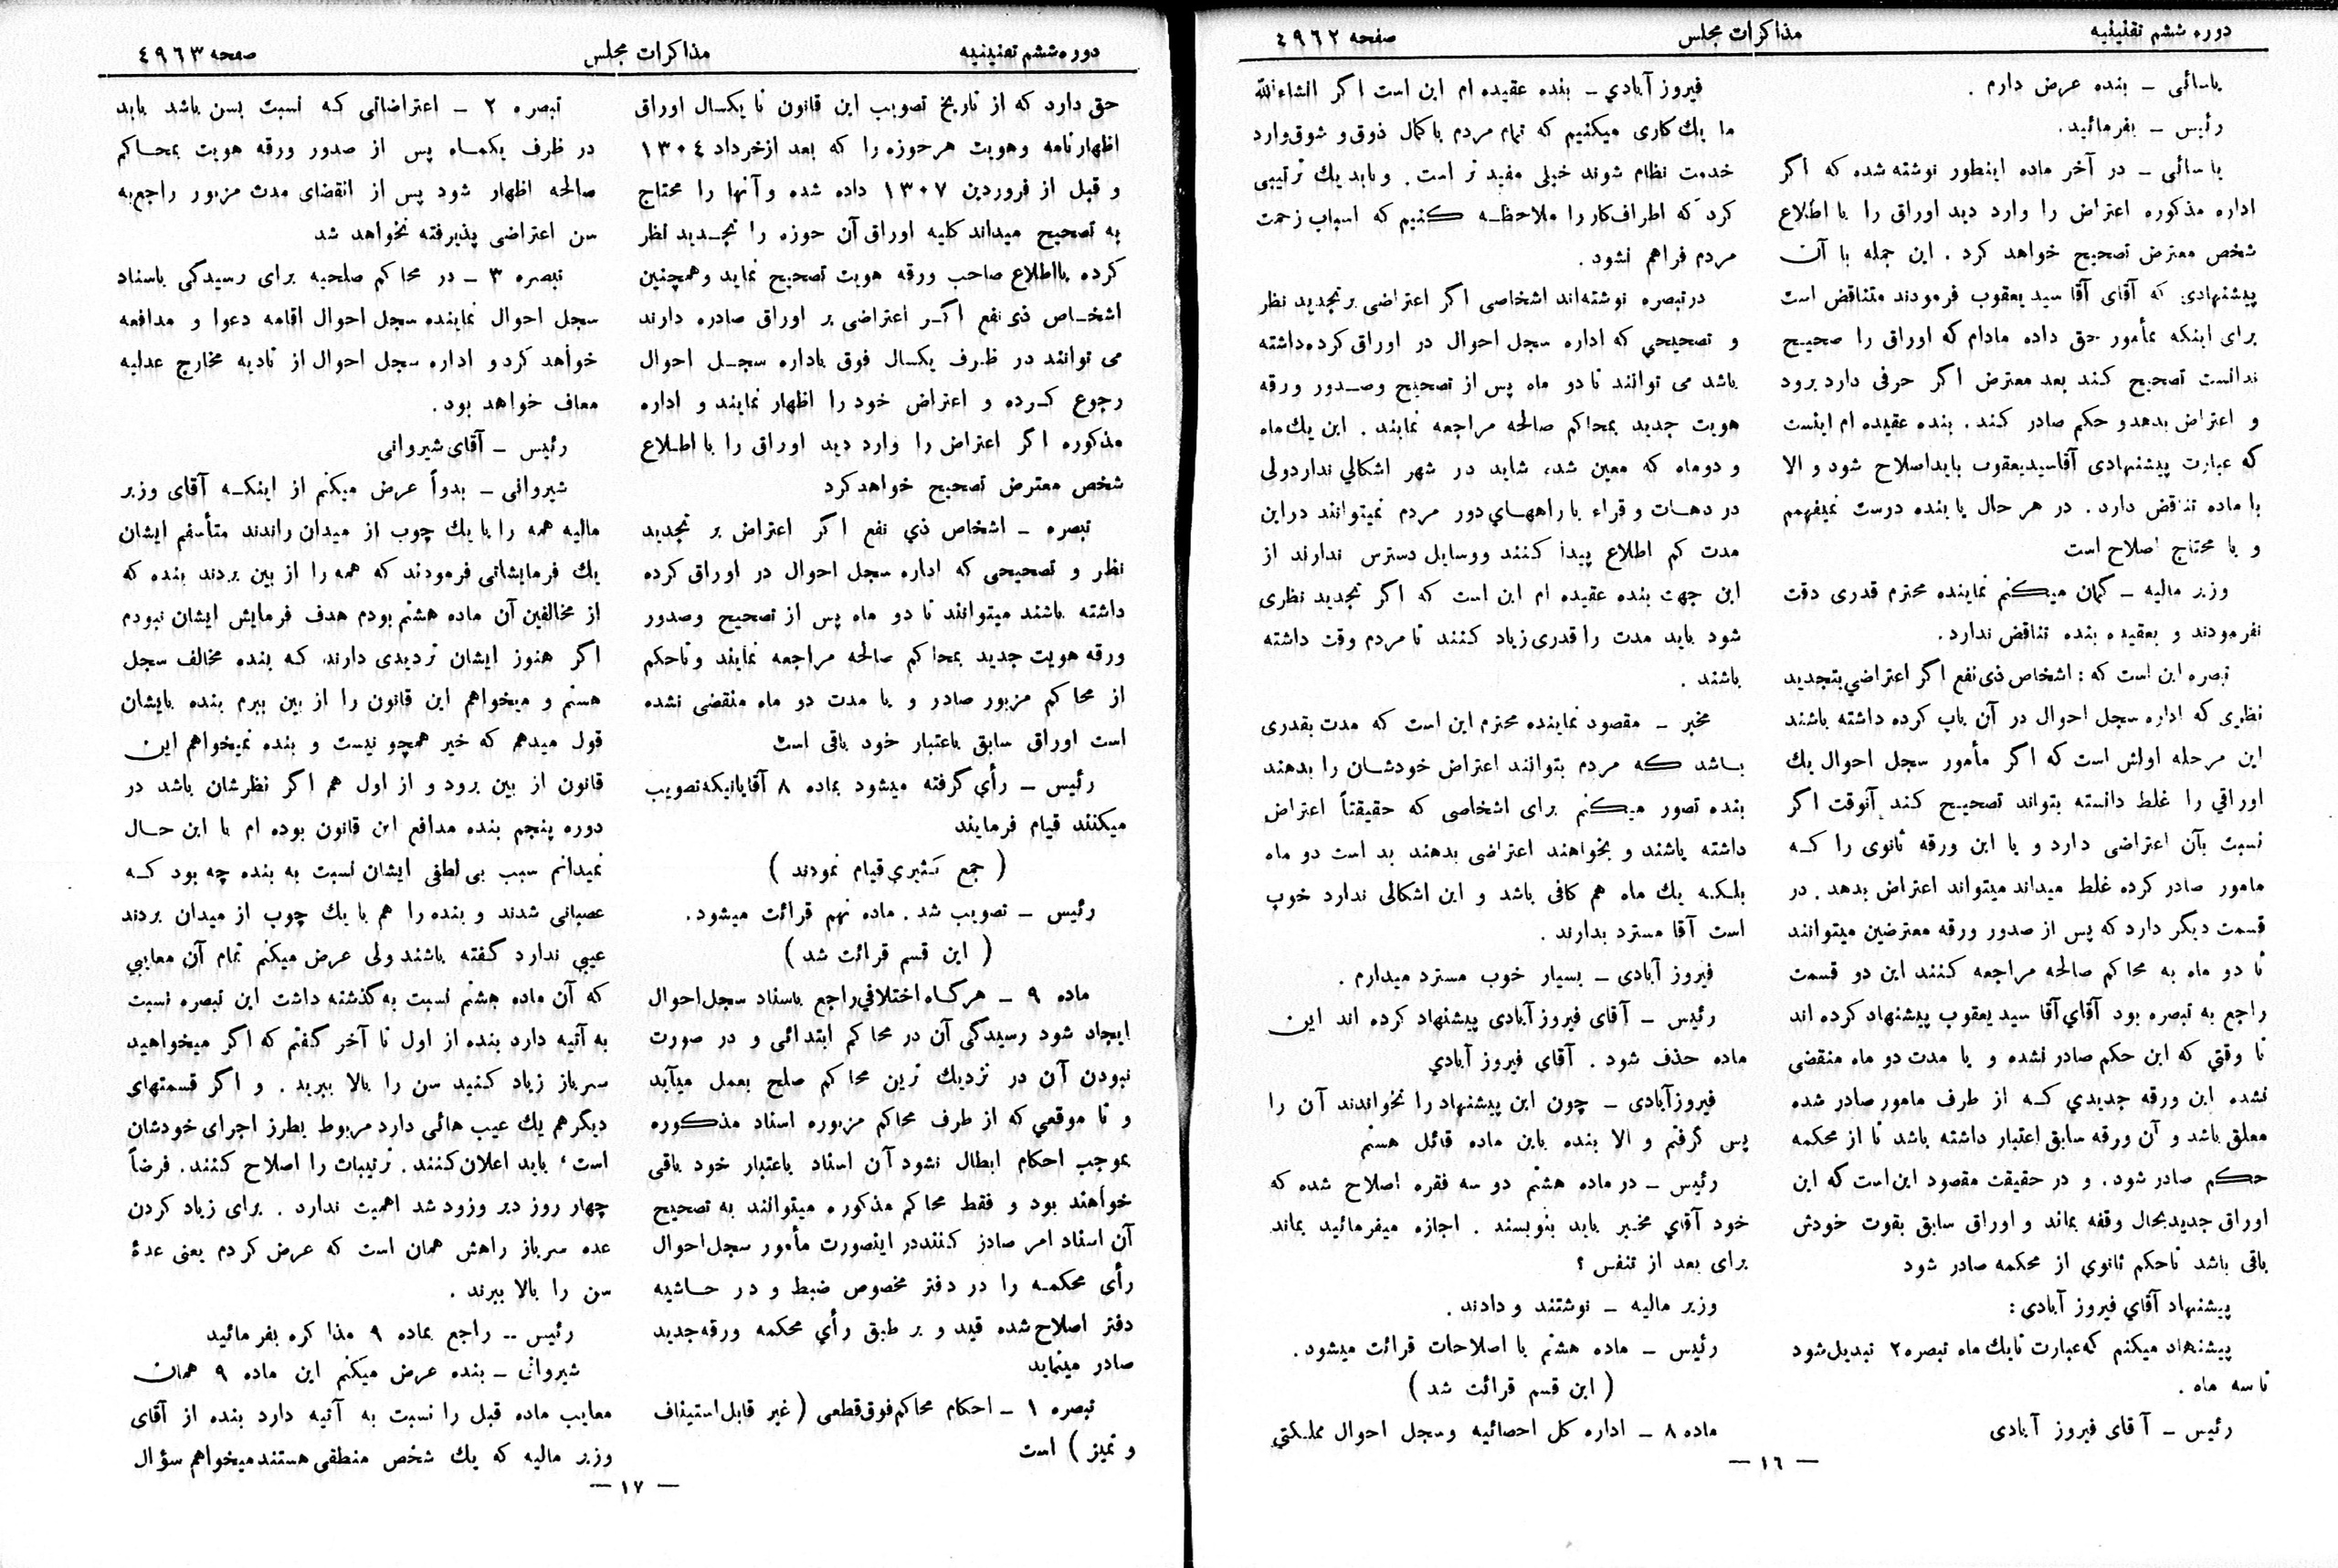 دوره ششم تقنینیه
مذاکرات مجلس
صفحه ٤٩٦٢
یاسائی ـ بنده عرض دارم .
رئیس ـ بفرمائید.
یاسائی ـ در آخر ماده اینطور نوشته شده که اگر
اداره مذکوره اعتراض را وارد دید اوراق را با اطلاع
شخص معترض تصحیح خواهد کرد . این جمله با آن
پیشنهادی که آقای آقا سید یعقوب فرمودند متناقض است
برای اینکه بمأمور حق داده مادام که اوراق را صحیح
ندانست تصحیح کند بعد معترض اگر حرفی دارد برود
و اعتراض بدهد و حکم صادر کند . بنده عقیده ام اینست
که عبارت پیشنهادی آقاسیدیعقوب باید اصلاح شود و الا
با ماده تناقض دارد . در هر حال یا بنده درست نمیفهمم
و یا محتاج اصلاح است
وزیر مالیه ـ گمان میکنم نماینده محترم قدری دقت
نفرمودند و بعقیده بنده تناقض ندارد .
تبصره این است که : اشخاص ذی نفع اگر اعتراضی بتجدید
نظری که اداره سجل احوال در آن باب کرده داشته باشند
این مرحله اولش است که اگر مأمور سجل احوال یك
اوراقی را غلط دانسته بتواند تصحیح کند آنوقت اگر
نسبت بآن اعتراضی دارد و یا این ورقه ثانوی را که
مامور صادر کرده غلط میداند میتواند اعتراض بدهد . در
قسمت دیگر دارد که پس از صدور ورقه معترضین میتوانند
تا دو ماه به محاکم صالحه مراجعه کنند این دو قسمت
راجع به تبصره بود آقای آقا سید یعقوب پیشنهاد کرده اند
تا وقتی که این حکم صادر نشده و یا مدت دو ماه منقضی
نشده این ورقه جدیدی که از طرف مامور صادر شده
معلق باشد و آن ورقه سابق اعتبار داشته باشد تا از محکمه
حکم صادر شود . و در حقیقت مقصود این است که این
اوراق جدید بحال وقفه بماند و اوراق سابق بقوت خودش
باقی باشد تا حکم ثانوی از محکمه صادر شود
پیشنهاد آقای فیروز آبادی :
پیشنهاد میکنم که عبارت تا یك ماه تبصره ۲ تبدیل شود
تا سه ماه .
رئیس ـ آقای فیروز آبادی
فیروز آبادی ـ بنده عقیده ام این است اگر انشاءالله
ما یك کاری میکنیم که تمام مردم با کمال ذوق و شوق وارد
خدمت نظام شوند خیلی مفید تر است . و باید یك ترتیبی
کرد که اطراف کار را ملاحظه کنیم که اسباب زحمت
مردم فراهم نشود .
در تبصره نوشته‌اند اشخاصی اگر اعتراضی بر تجدید نظر
و تصحیحی که اداره سجل احوال در اوراق کرده داشته
باشد می توانند تا دو ماه پس از تصحیح و صدور ورقه
هویت جدید بمحاکم صالحه مراجعه نمایند . این یك ماه
و دو ماه که معین شده شاید در شهر اشکالی ندارد ولی
در دهات و قراء با راههای دور مردم نمیتوانند در این
مدت کم اطلاع پیدا کنند و وسایل دسترس ندارند از
این جهت بنده عقیده ام این است که اگر تجدید نظری
شود باید مدت را قدری زیاد کنند تا مردم وقت داشته
باشند .
مخبر ـ مقصود نماینده محترم این است که مدت بقدری
باشد که مردم بتوانند اعتراض خودشان را بدهند
بنده تصور میکنم برای اشخاصی که حقیقتاً اعتراض
داشته باشند و بخواهند اعتراضی بدهند بد است دو ماه
بلکه یك ماه هم کافی باشد و این اشکالی ندارد خوب
است آقا مسترد بدارند .
فیروز آبادی ـ بسیار خوب مسترد میدارم .
رئیس ـ آقای فیروز آبادی پیشنهاد کرده اند این
ماده حذف شود . آقای فیروز آبادی
فیروز آبادی ـ چون این پیشنهاد را نخواندند آن را
پس گرفتم و الا بنده باین ماده قائل هستم
رئیس ـ در ماده هشتم دو سه فقره اصلاح شده که
خود آقای مخبر باید بنویسند . اجازه میفرمائید بماند
برای بعد از تنفس ؟
وزیر مالیه ـ نوشتند و دادند .
رئیس ـ ماده هشتم با اصلاحات قرائت میشود .
( این قسم قرائت شد )
ماده ۸ ـ اداره کل احصائیه و سجل احوال مملکتی
ـ ١٦ ـ
دوره ششم تقنینیه
مذاکرات مجلس
صفحه ٤٩٦٣
حق دارد که از تاریخ تصویب این قانون تا یکسال اوراق
اظهارنامه و هویت هر حوزه را که بعد از خرداد ١٣٠٤
و قبل از فروردین ١٣٠٧ داده شده و آنها را محتاج
به تصحیح میداند کلیه اوراق آن حوزه را تجدید نظر
کرده با اطلاع صاحب ورقه هویت تصحیح نماید و همچنین
اشخاص ذی نفع اگر اعتراضی بر اوراق صادره دارند
می توانند در ظرف یکسال فوق باداره سجل احوال
رجوع کرده و اعتراض خود را اظهار نمایند و اداره
مذکوره اگر اعتراض را وارد دید اوراق را با اطلاع
شخص معترض تصحیح خواهد کرد
تبصره ـ اشخاص ذی نفع اگر اعتراض بر تجدید
نظر و تصحیحی که اداره سجل احوال در اوراق کرده
داشته باشند میتوانند تا دو ماه پس از تصحیح و صدور
ورقه هویت جدید بمحاکم صالحه مراجعه نمایند و تا حکم
از محاکم مزبور صادر و یا مدت دو ماه منقضی نشده
است اوراق سابق باعتبار خود باقی است
رئیس ـ رأی گرفته میشود بماده ۸ آقایانیکه تصویب
میکنند قیام فرمایند
( جمع کثیری قیام نمودند )
رئیس ـ تصویب شد . ماده نهم قرائت میشود .
( این قسم قرائت شد )
ماده ۹ ـ هرگاه اختلافی راجع باسناد سجل احوال
ایجاد شود رسیدگی آن در محاکم ابتدائی و در صورت
نبودن آن در نزدیك ترین محاکم صلح بعمل میآید
و تا موقعی که از طرف محاکم مزبوره اسناد مذکوره
بموجب احکام ابطال نشود آن اسناد باعتبار خود باقی
خواهند بود و فقط محاکم مذکوره میتوانند به تصحیح
آن اسناد امر صادر کنند در اینصورت مأمور سجل احوال
رأی محکمه را در دفتر مخصوص ضبط و در حاشیه
دفتر اصلاح شده قید و بر طبق رأی محکمه ورقه جدید
صادر مینماید
تبصره ١ ـ احکام محاکم فوق قطعی ( غیر قابل استیناف
و تمیز ) است
تبصره ۲ ـ اعتراضاتی که نسبت بسن باشد باید
در ظرف یکماه پس از صدور ورقه هویت بمحاکم
صالحه اظهار شود پس از انقضای مدت مزبور راجع به
سن اعتراضی پذیرفته نخواهد شد
تبصره ۳ ـ در محاکم صلحیه برای رسیدگی باسناد
سجل احوال نماینده سجل احوال اقامه دعوا و مدافعه
خواهد کرد و اداره سجل احوال از تادیه مخارج عدلیه
معاف خواهد بود .
رئیس ـ آقای شیروانی
شیروانی ـ بدواً عرض میکنم از اینکه آقای وزیر
مالیه همه را با یك چوب از میدان راندند متأسفم ایشان
یك فرمایشاتی فرمودند که همه را از بین بردند بنده که
از مخالفین آن ماده هشتم بودم هدف فرمایش ایشان نبودم
اگر هنوز ایشان تردیدی دارند که بنده مخالف سجل
هستم و میخواهم این قانون را از بین ببرم بنده بایشان
قول میدهم که خیر همچو نیست و بنده نمیخواهم این
قانون از بین برود و از اول هم اگر نظرشان باشد در
دوره پنجم بنده مدافع این قانون بوده ام با این حال
نمیدانم سبب بی لطفی ایشان نسبت به بنده چه بود که
عصبانی شدند و بنده را هم با یك چوب از میدان بردند
عیبی ندارد گفته باشند ولی عرض میکنم تمام آن معایبی
که آن ماده هشتم نسبت به گذشته داشت این تبصره نسبت
به آتیه دارد بنده از اول تا آخر گفتم که اگر میخواهید
سرباز زیاد کنید سن را بالا ببرید . و اگر قسمتهای
دیگر هم یك عیب هائی دارد مربوط بطرز اجرای خودشان
است باید اعلان کنند . ترتیبات را اصلاح کنند . فرضاً
چهار روز دیر و زود شد اهمیت ندارد . برای زیاد کردن
عده سرباز راهش همان است که عرض کردم یعنی عدهٔ
سن را بالا ببرند .
رئیس ـ راجع بماده ۹ مذاکره بفرمائید
شیروانی ـ بنده عرض میکنم این ماده ۹ همان
معایب ماده قبل را نسبت به آتیه دارد بنده از آقای
وزیر مالیه که یك شخص منطقی هستند میخواهم سؤال
ـ ١٧ ـ